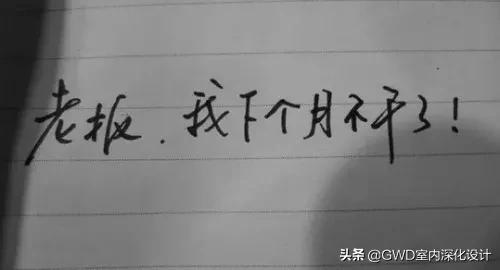 老板.我下个月不干了!
头条 @GWD室内深化设计